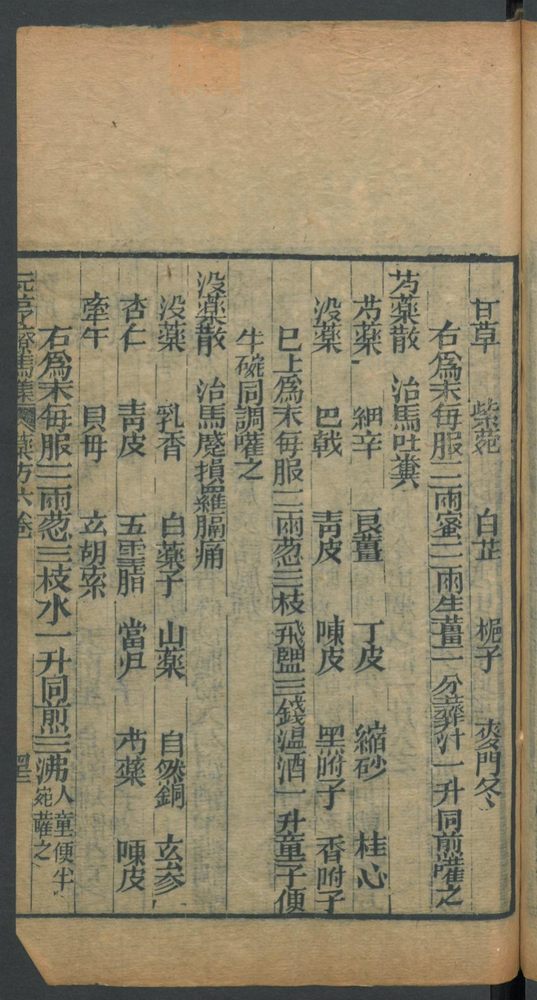 甘草 紫菀 白芷 梔子 麥門冬
右為末每服二兩蜜二兩生薑一分虀汁一升同煎灌之
芍藥散 治馬吐糞
芍藥 細辛 良薑 丁皮 縮砂 桂心
沒藥 巴戟 靑皮 陳皮 黑附子 香附子
已上為末每服二兩葱三枝飛鹽三錢溫酒一升童子便
半碗同調灌之
沒藥散 治馬羅膈痛
沒藥 乳香 白藥子 山藥 自然銅 玄參
杏仁 靑皮 五靈脂 當歸 芍藥 陳皮
牽牛 貝母 玄胡索
右為末每服二兩葱三枝水一升同煎三沸入童便半
碗灌之
元亨療馬集 藥方六卷